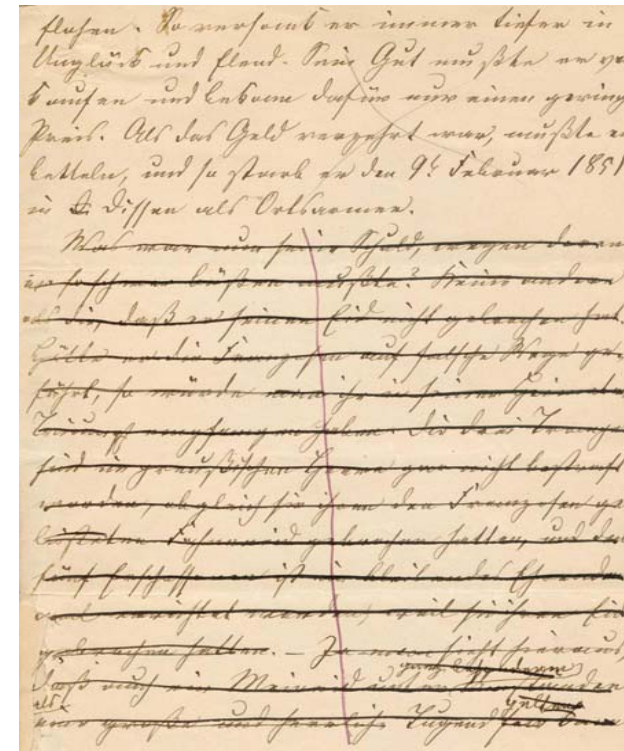 flohen. So versank er immer tiefer in
Unglück und Elend. Sein Gut mußte er ver
kaufen und bekam dafür nur einen gering
Preis. Als das Geld verzehrt war, mußte er
betteln, und so starb er den 9t Februar 1851
in Dissen als Ortsarmer.
Was war nun seine Schuld, wegen deren
er so schwer büßen mußte? Keine andere
als die, daß er seinen Eid nicht gebrochen hat.
Hätte er die Franzosen auf falsche Wege ge
führt, so würde man ihn in seiner Heimat
Triumpf empfangen haben. Die drei
sind im preußischen Heere gar nicht bestraft
worden, obgleich sie ihren den Franzosen ge
leisteten Fahneneid gebrochen hatten, und den
fünf Erschossenen ist ein bleibendes Ehrenden
mal errichtet worden, weil sie ihren Eid
gebrochen hatten. – Ja man sieht hieraus,
daß auch ein Meineid unter ganz besonderen
als eine große und herrliche Tugend gelten kann